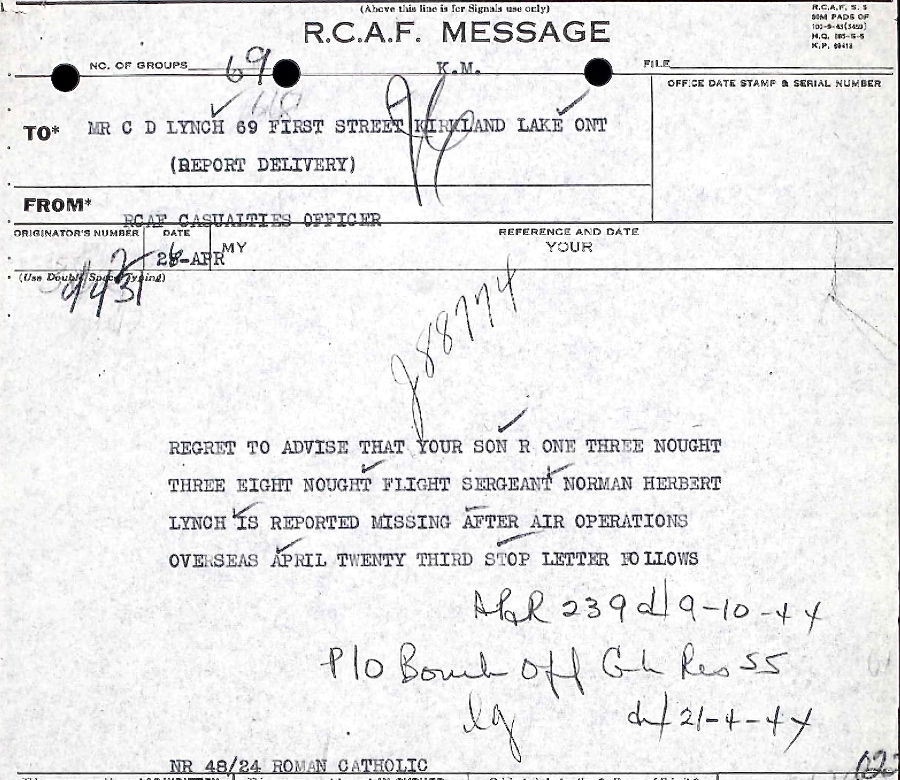 (Above this line is for Signals use only)
R.C.A.F. MESSAGE
R.C.A.F. S. 5
50M PADS OF
H.Q. 885-S-5
NO. OF GROUPS 69
K.M.
FILE
OFFICE DATE STAMP & SERIAL NUMBER
TO* MR C D LYNCH 69 FIRST STREET KIRKLAND LAKE ONT
(REPORT DELIVERY)
FROM*
RCAF CASUALTIES OFFICER
ORIGINATOR'S NUMBER DATE REFERENCE AND DATE
MY YOUR
-APR
(Use Double Space Typing)
J88774
REGRET TO ADVISE THAT YOUR SON R ONE THREE NOUGHT
THREE EIGHT NOUGHT FLIGHT SERGEANT NORMAN HERBERT
LYNCH IS REPORTED MISSING AFTER AIR OPERATIONS
OVERSEAS APRIL TWENTY THIRD STOP LETTER FOLLOWS
239 d/ 9-10-44
P/O Bomb Off Res 55
d/ 21-4-44
NR 48/24 ROMAN CATHOLIC